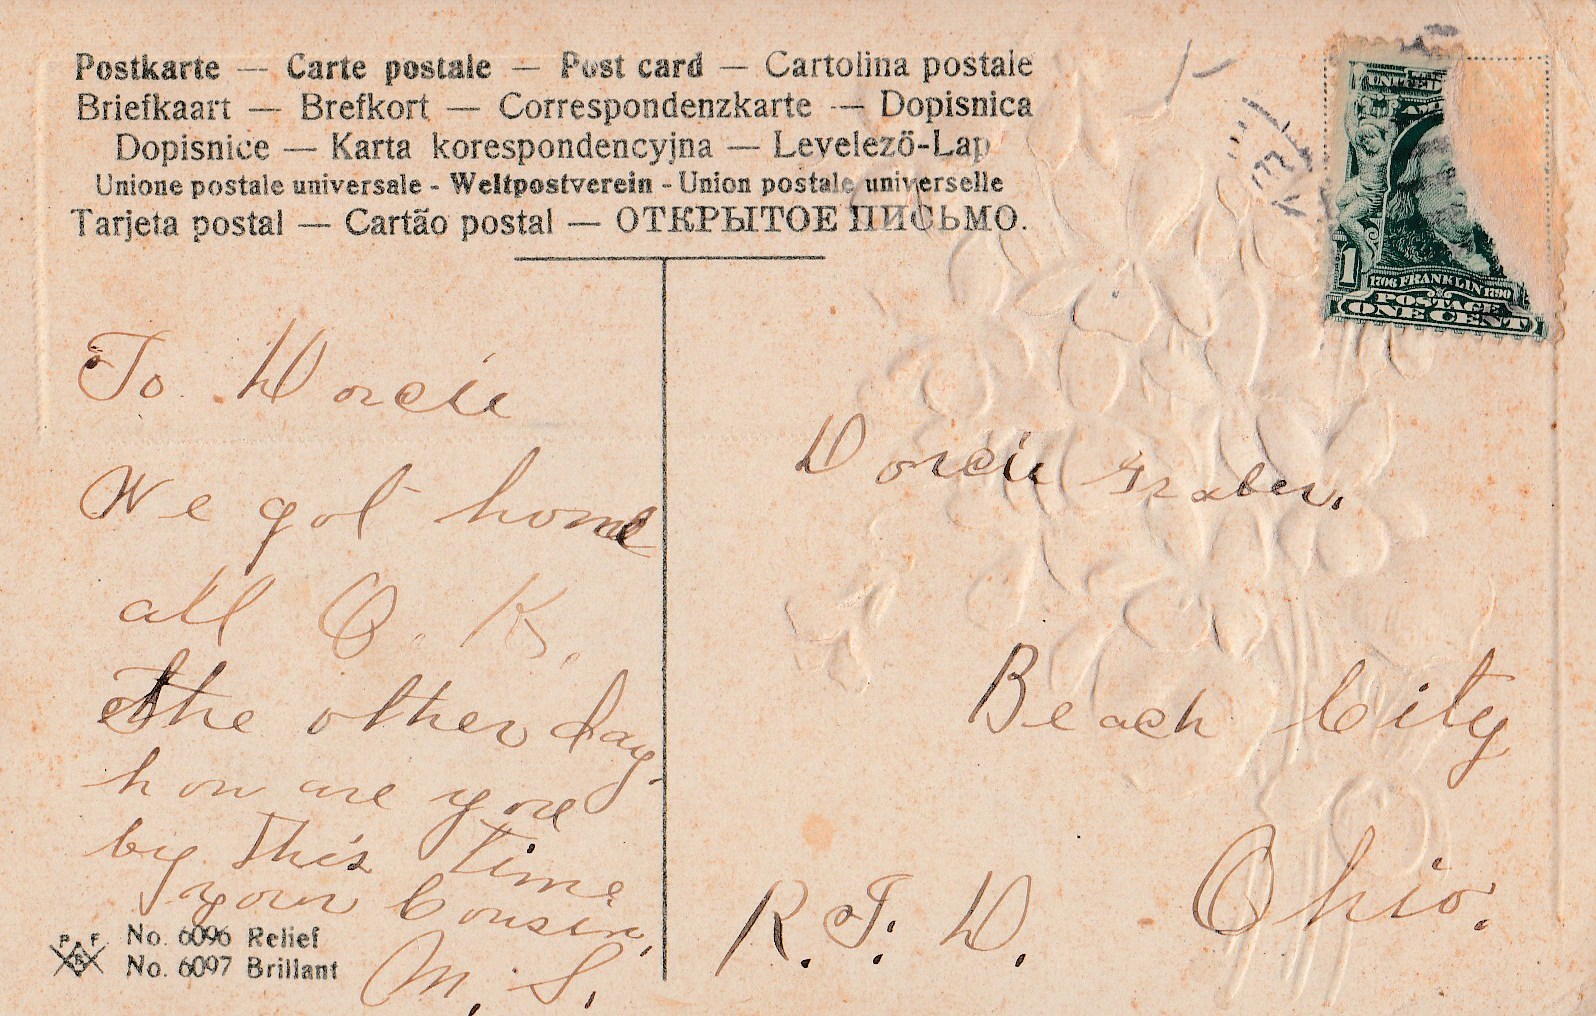 Postkarte — Carte postale — Post card — Cartolina postale
Briefkaart — Brefkort — Correspondenzkarte — Dopisnica
Dopisnice — Karta korespondencyjna — Levelezö-Lap
Unione postale universale - Weltpostverein - Union postale universelle
Tarjeta postal — Cartão postal — ОТКРЫТОЕ ПИСЬМО.
1
1706 FRANKLIN 1790
POSTAGE
ONE CENT
To Dorcie
We got home
all O. K.
the other day
how are you
by this time
your Cousin,
M. S.
Dorcie Graber.
Beach City
Ohio.
R. F. D.
P F
B
No. 6096 Relief
No. 6097 Brillant